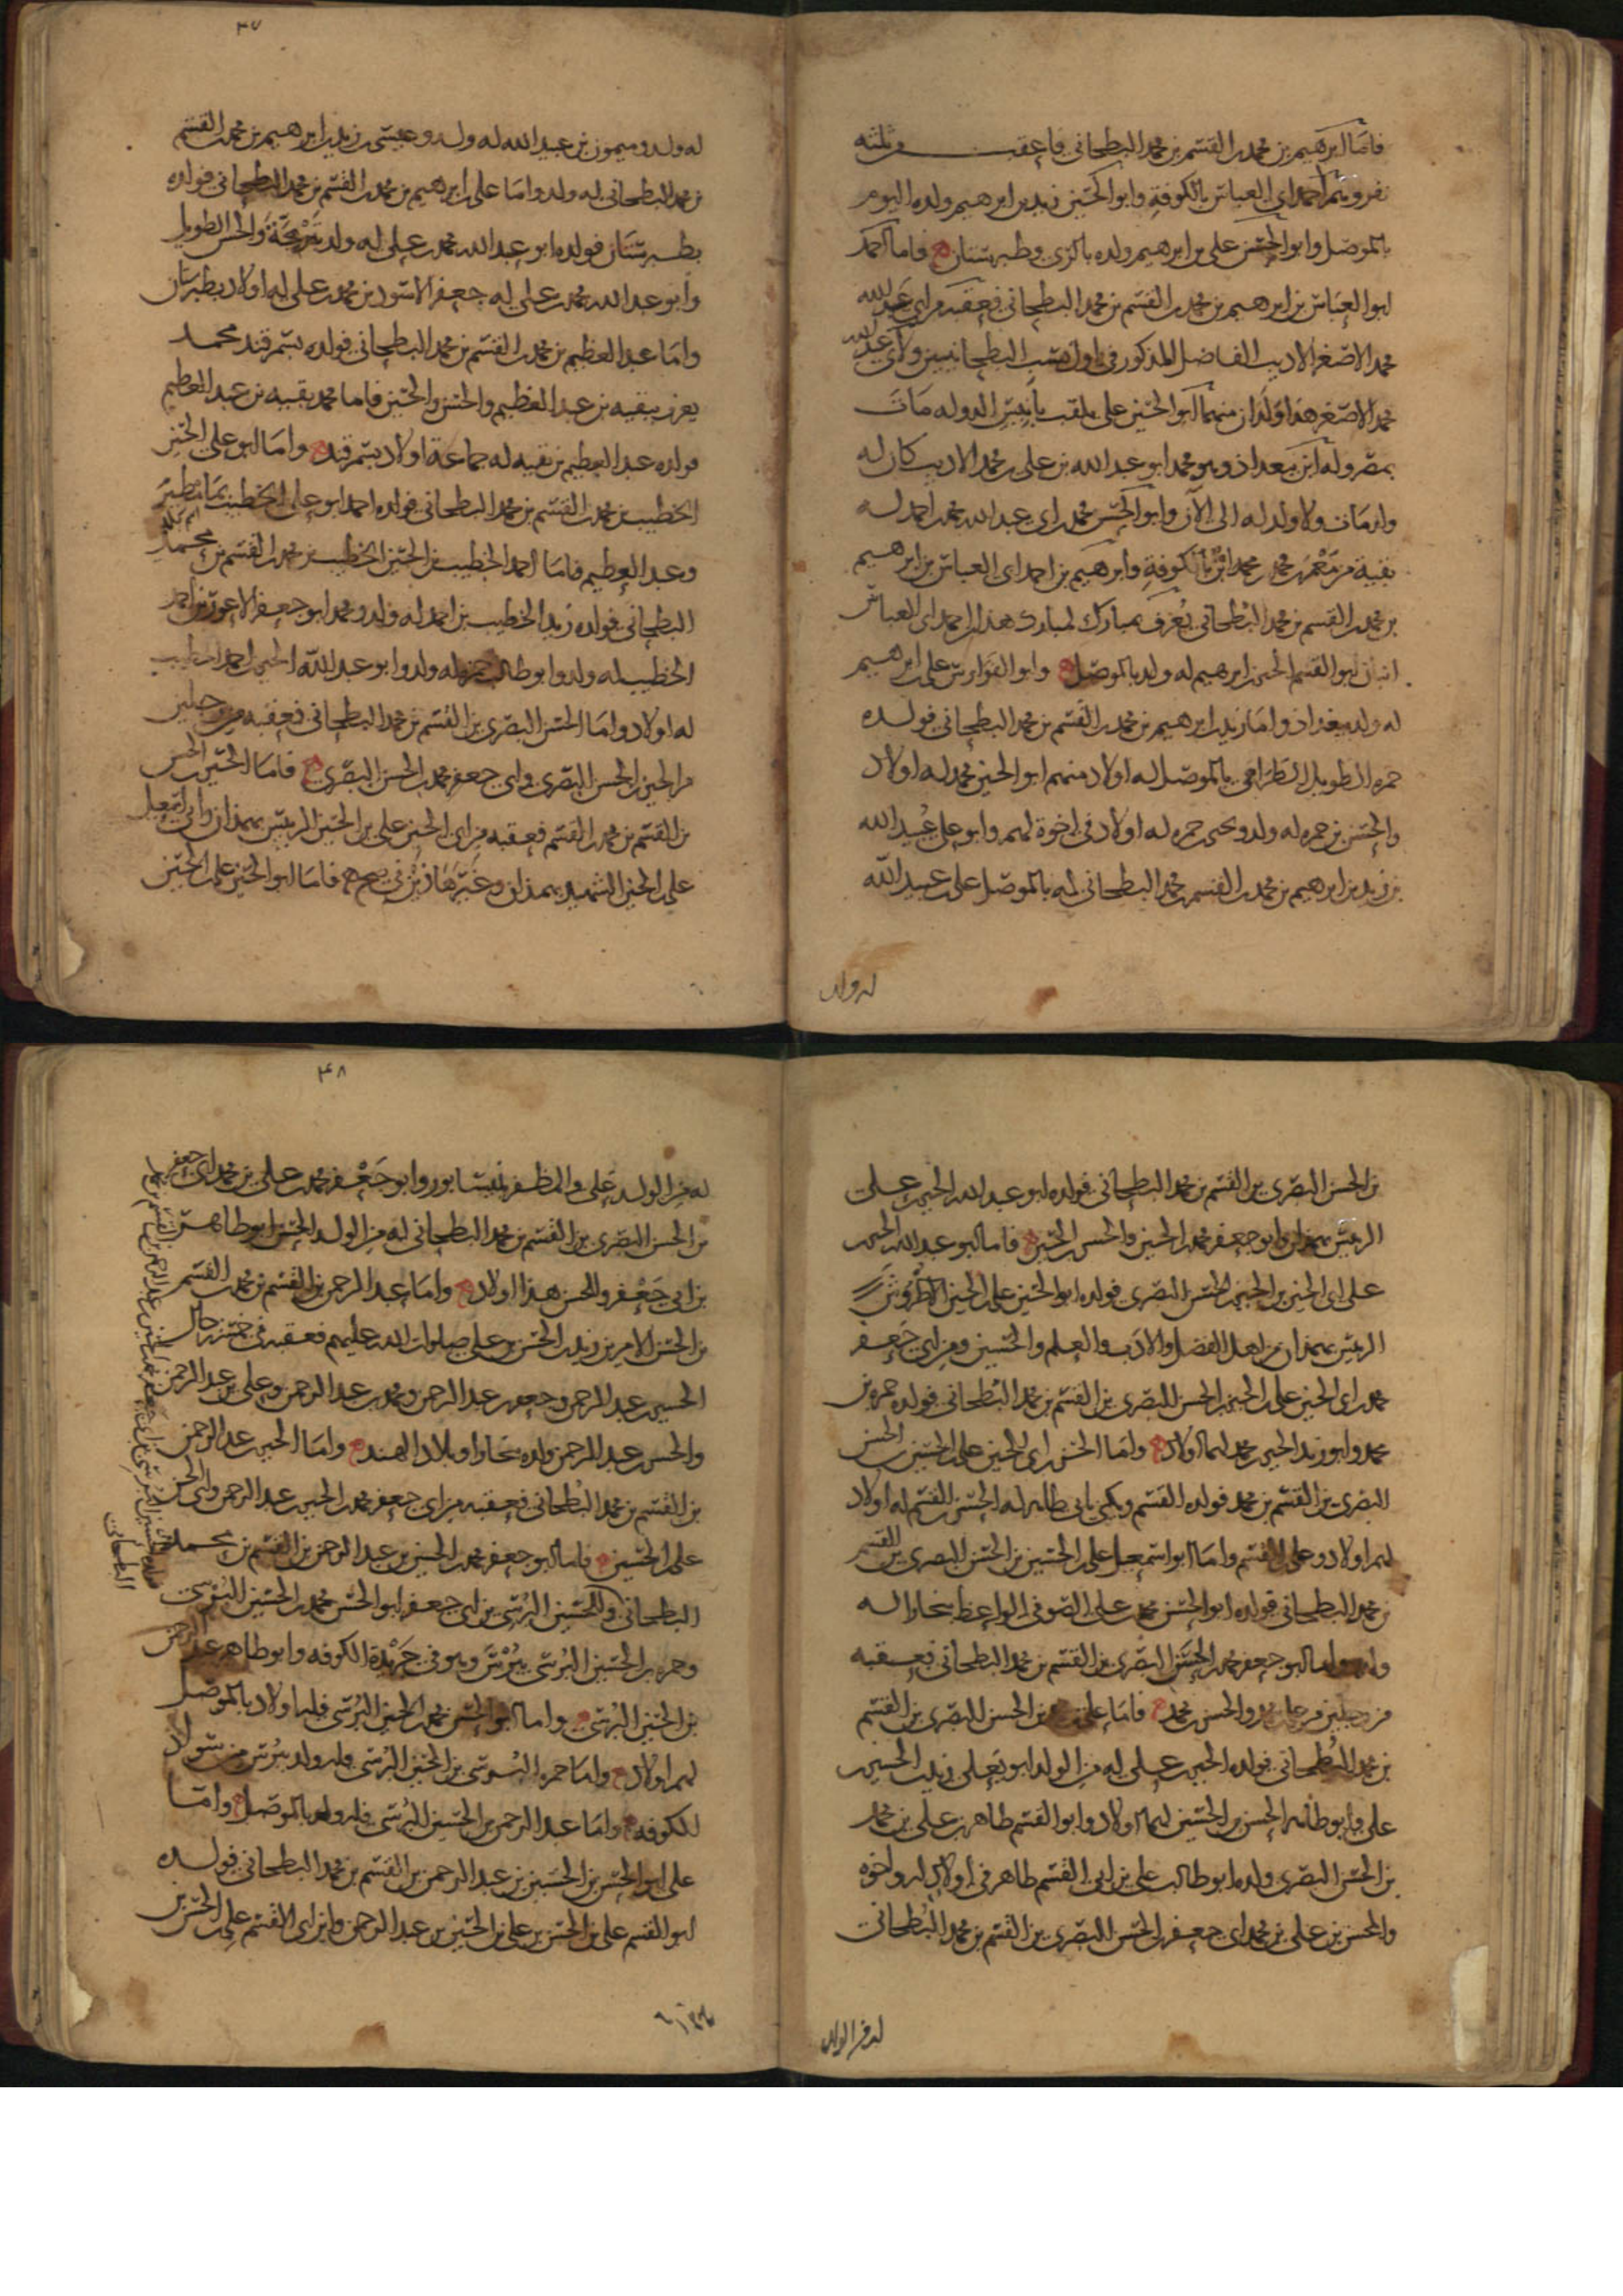 فاما ابرهيم بن محمد بن القسم بن محمد البطحاني فاعقب من ثلثه
نفر وهم احمد ابي العباس بالكوفة وابو الحسين زيد بن ابرهيم ولده اليوم
بالموصل وابو الحسن علي بن ابرهيم ولده بالري وطبرستان فاما احمد
ابو العباس بن ابرهيم بن محمد بن القسم بن محمد البطحاني فعقبه من ابي عبد الله
محمد الاصغر الاديب الفاضل المذكور في اول نسب البطحانيين ولابي عبد الله
محمد الاصغر هذا ولدان منهما ابو الحسين علي يلقب بانيس الدوله مات
بمصر وله ابن ببغداذ وهو محمد ابو عبد الله بن علي بن محمد الاديب كان له
ولد مات ولا ولد له الى الان وابو الحسن محمد بن ابي عبد الله محمد بن احمد له
بقية من محمد بالكوفة وابرهيم بن احمد ابي العباس بن ابرهيم
بن محمد بن القسم بن محمد البطحاني يعرف بمبارك لمبارك هذا بن احمد ابي العباس
ابنان ابو القسم الحسين بن ابرهيم له ولد بالموصل وابو الفوارس علي بن ابرهيم
له ولد ببغداذ واما زيد بن ابرهيم بن محمد بن القسم بن محمد البطحاني فولده
حمزه الطويل بالموصل له اولاد منهم ابو الحسين محمد له اولاد
والحسن بن حمزه له ولد ويحيى بن حمزه له اولاد في اخوة لهم وابو علي عبيد الله
بن زيد بن ابرهيم بن محمد بن القسم بن محمد البطحاني له بالموصل علي بن عبيد الله
له ولد
٣٧
له ولد وميمون بن عبيد الله له ولد وعيسى بن زيد بن ابرهيم بن محمد بن القسم
بن محمد البطحاني له ولد واما علي بن ابرهيم بن محمد بن القسم بن محمد البطحاني فولده
بطبرستان فولده ابو عبد الله محمد بن علي له ولد والحسن الطويل
وابو عبد الله محمد بن علي له جعفر الاسود بن محمد بن علي له اولاد بطبرستان
واما عبد العظيم بن محمد بن القسم بن محمد البطحاني فولده بسمرقند محمد
يعرف ببقيه بن عبد العظيم والحسن والحسين فاما محمد بقيه بن عبد العظيم
فولده عبد العظيم بن بقيه له جماعة اولاد بسمرقند واما ابو علي الحسين
الخطيب بن محمد بن القسم بن محمد البطحاني فولده احمد ابو علي الخطيب بمامطير
وعبد العظيم فاما احمد الخطيب بن الحسين الخطيب بن محمد بن القسم بن محمد
البطحاني فولده زيد الخطيب بن احمد له ولد ومحمد ابو جعفر الاعور بن احمد
الخطيب له ولد وابو طالب حمزه له ولد وابو عبد الله الحسين بن احمد الخطيب
له اولاد واما الحسن البصري بن القسم بن محمد البطحاني فعقبه من رجلين
من الحسين بن الحسن البصري وابي جعفر محمد بن الحسن البصري فاما الحسين بن الحسن
بن القسم بن محمد بن القسم فعقبه من ابي الحسين علي بن الحسين الرييس بهمذان وابي اسمعيل
علي بن الحسين الشهيد بهمذان وغيرهما فاما ابو الحسين علي بن الحسين
بن الحسن البصري بن القسم بن محمد البطحاني فولده ابو عبد الله الحسين بن علي
الرييس بهمذان وابو جعفر محمد بن الحسين والحسن بن الحسين فاما ابو عبد الله الحسين
علي ابي الحسين بن الحسين بن الحسن البصري فولده ابو الحسين علي بن الحسين الاطروش
الرييس بهمذان من اهل الفضل والادب والعلم والحسين ومن ابي جعفر
محمد بن ابي الحسين علي بن الحسين بن الحسن البصري بن القسم بن محمد البطحاني فولده حمزه بن
محمد وابو زيد الحسين بن محمد لهما اولاد واما الحسن بن ابي الحسين علي بن الحسين بن الحسن
البصري بن القسم بن محمد فولده القسم ويكنى بابي طالب له الحسن بن القسم له اولاد
لهم اولاد وعلي بن القسم واما ابو اسمعيل علي بن الحسين بن الحسن البصري بن القسم
بن محمد البطحاني فولده ابو الحسن محمد بن علي الصوفي الواعظ ببخارا له
ولد واما ابو جعفر محمد بن الحسن البصري بن القسم بن محمد البطحاني فعقبه
من رجلين من علي بن محمد والحسن بن محمد فاما علي بن محمد بن الحسن البصري بن القسم
بن محمد البطحاني فولده الحسين بن علي له من الولد ابو يعلى زيد بن الحسين بن
علي وابو طالب الحسن بن الحسين لهما اولاد وابو القسم طاهر بن علي بن محمد
بن الحسن البصري ولده ابو طالب علي بن ابي القسم طاهر في اولاد له واخوه
والحسن بن علي بن محمد ابي جعفر بن الحسن البصري بن القسم بن محمد البطحاني
له من الولد
٣٨
له من الولد علي والمظفر بنيسابور وابو جعفر محمد بن علي بن محمد ابي جعفر
بن الحسن البصري بن القسم بن محمد البطحاني له من الولد الحسن ابو طاهر
بن ابي جعفر وللحسن هذا اولاد واما عبد الرحمن بن القسم بن محمد بن القسم
بن الحسن الامير بن زيد بن الحسن بن علي صلوات الله عليهم فعقبه في خمسة رجال
الحسين بن عبد الرحمن وجعفر بن عبد الرحمن ومحمد بن عبد الرحمن وعلي بن عبد الرحمن
والحسن بن عبد الرحمن ولده ببخارا وبلاد الهند واما الحسين بن عبد الرحمن
بن القسم بن محمد البطحاني فعقبه من ابي جعفر محمد بن الحسين بن عبد الرحمن وابي الحسن
علي بن الحسين فاما ابو جعفر محمد بن الحسين بن عبد الرحمن بن القسم بن محمد
البطحاني والحسين البرسي بن ابي جعفر ابو الحسن محمد بن الحسين البرسي
وحمزه بن الحسين البرسي ببرس وهو في جريدة الكوفه وابو طاهر عبد الرحمن
بن الحسين البرسي واما ابو الحسن محمد بن الحسين البرسي فله اولاد بالموصل
لهم اولاد واما حمزه البرسي بن الحسين البرسي فله ولد ببرس من سواد
الكوفه واما عبد الرحمن بن الحسين البرسي فله ولد بالموصل واما
علي ابو الحسن بن الحسين بن عبد الرحمن بن القسم بن محمد البطحاني فولده
ابو القسم علي بن الحسن بن علي بن الحسين بن عبد الرحمن وابن ابي القسم علي بن الحسن بن